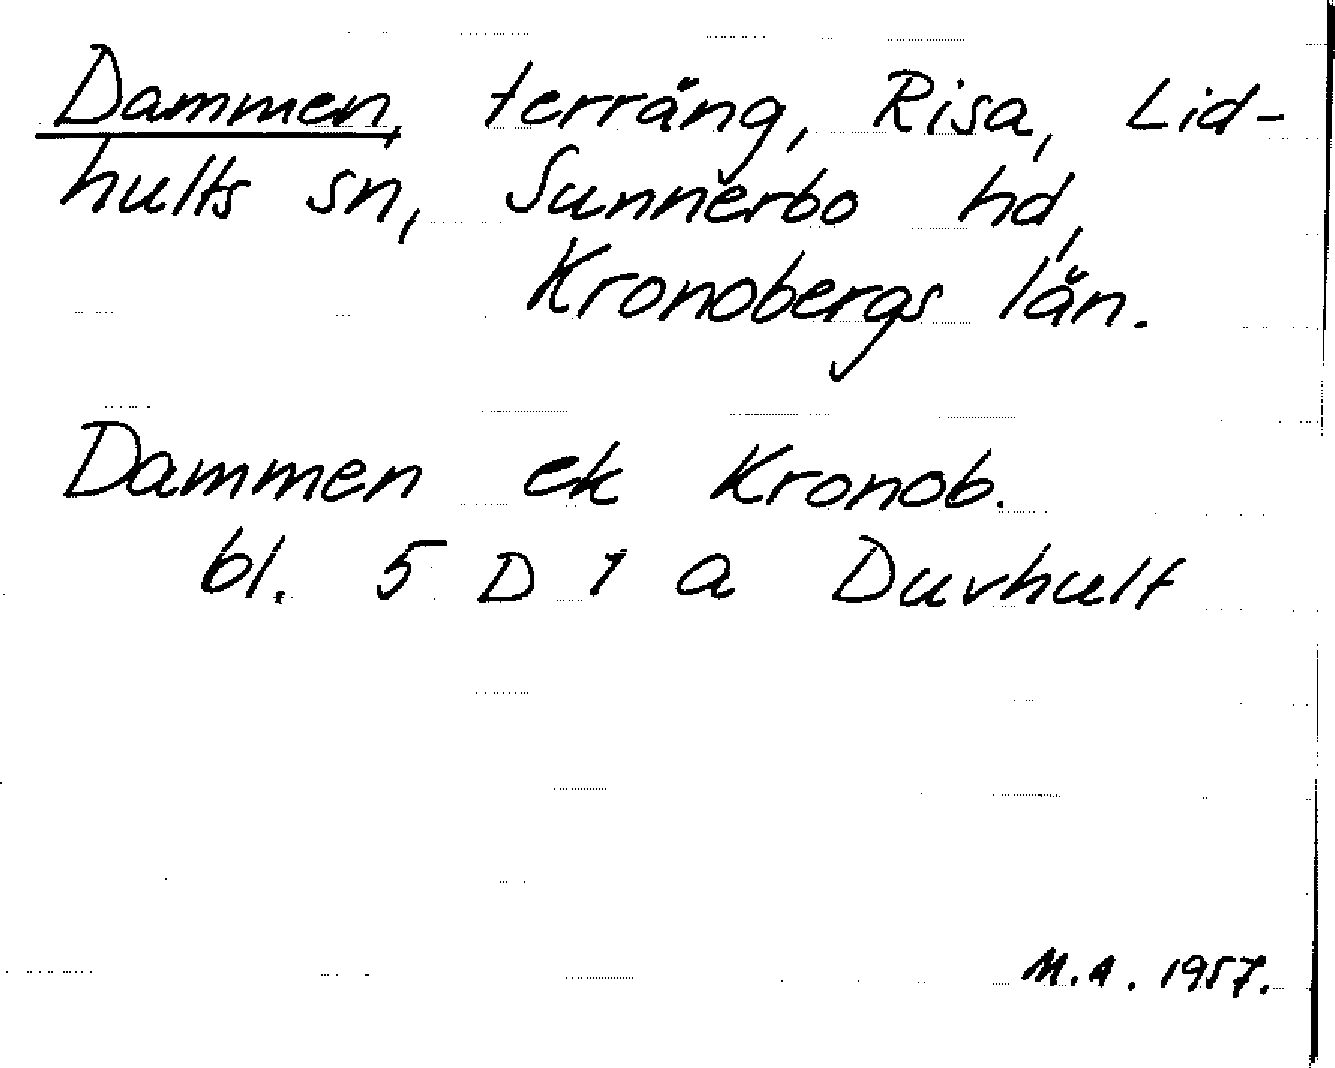 Dammen, terräng, Risa, Lid-
hults sn, Sunnerbo hd,
Kronobergs län.
Dammen ek Kronob.
bl. 5 D 1 a Duvhult
M.A. 1957.